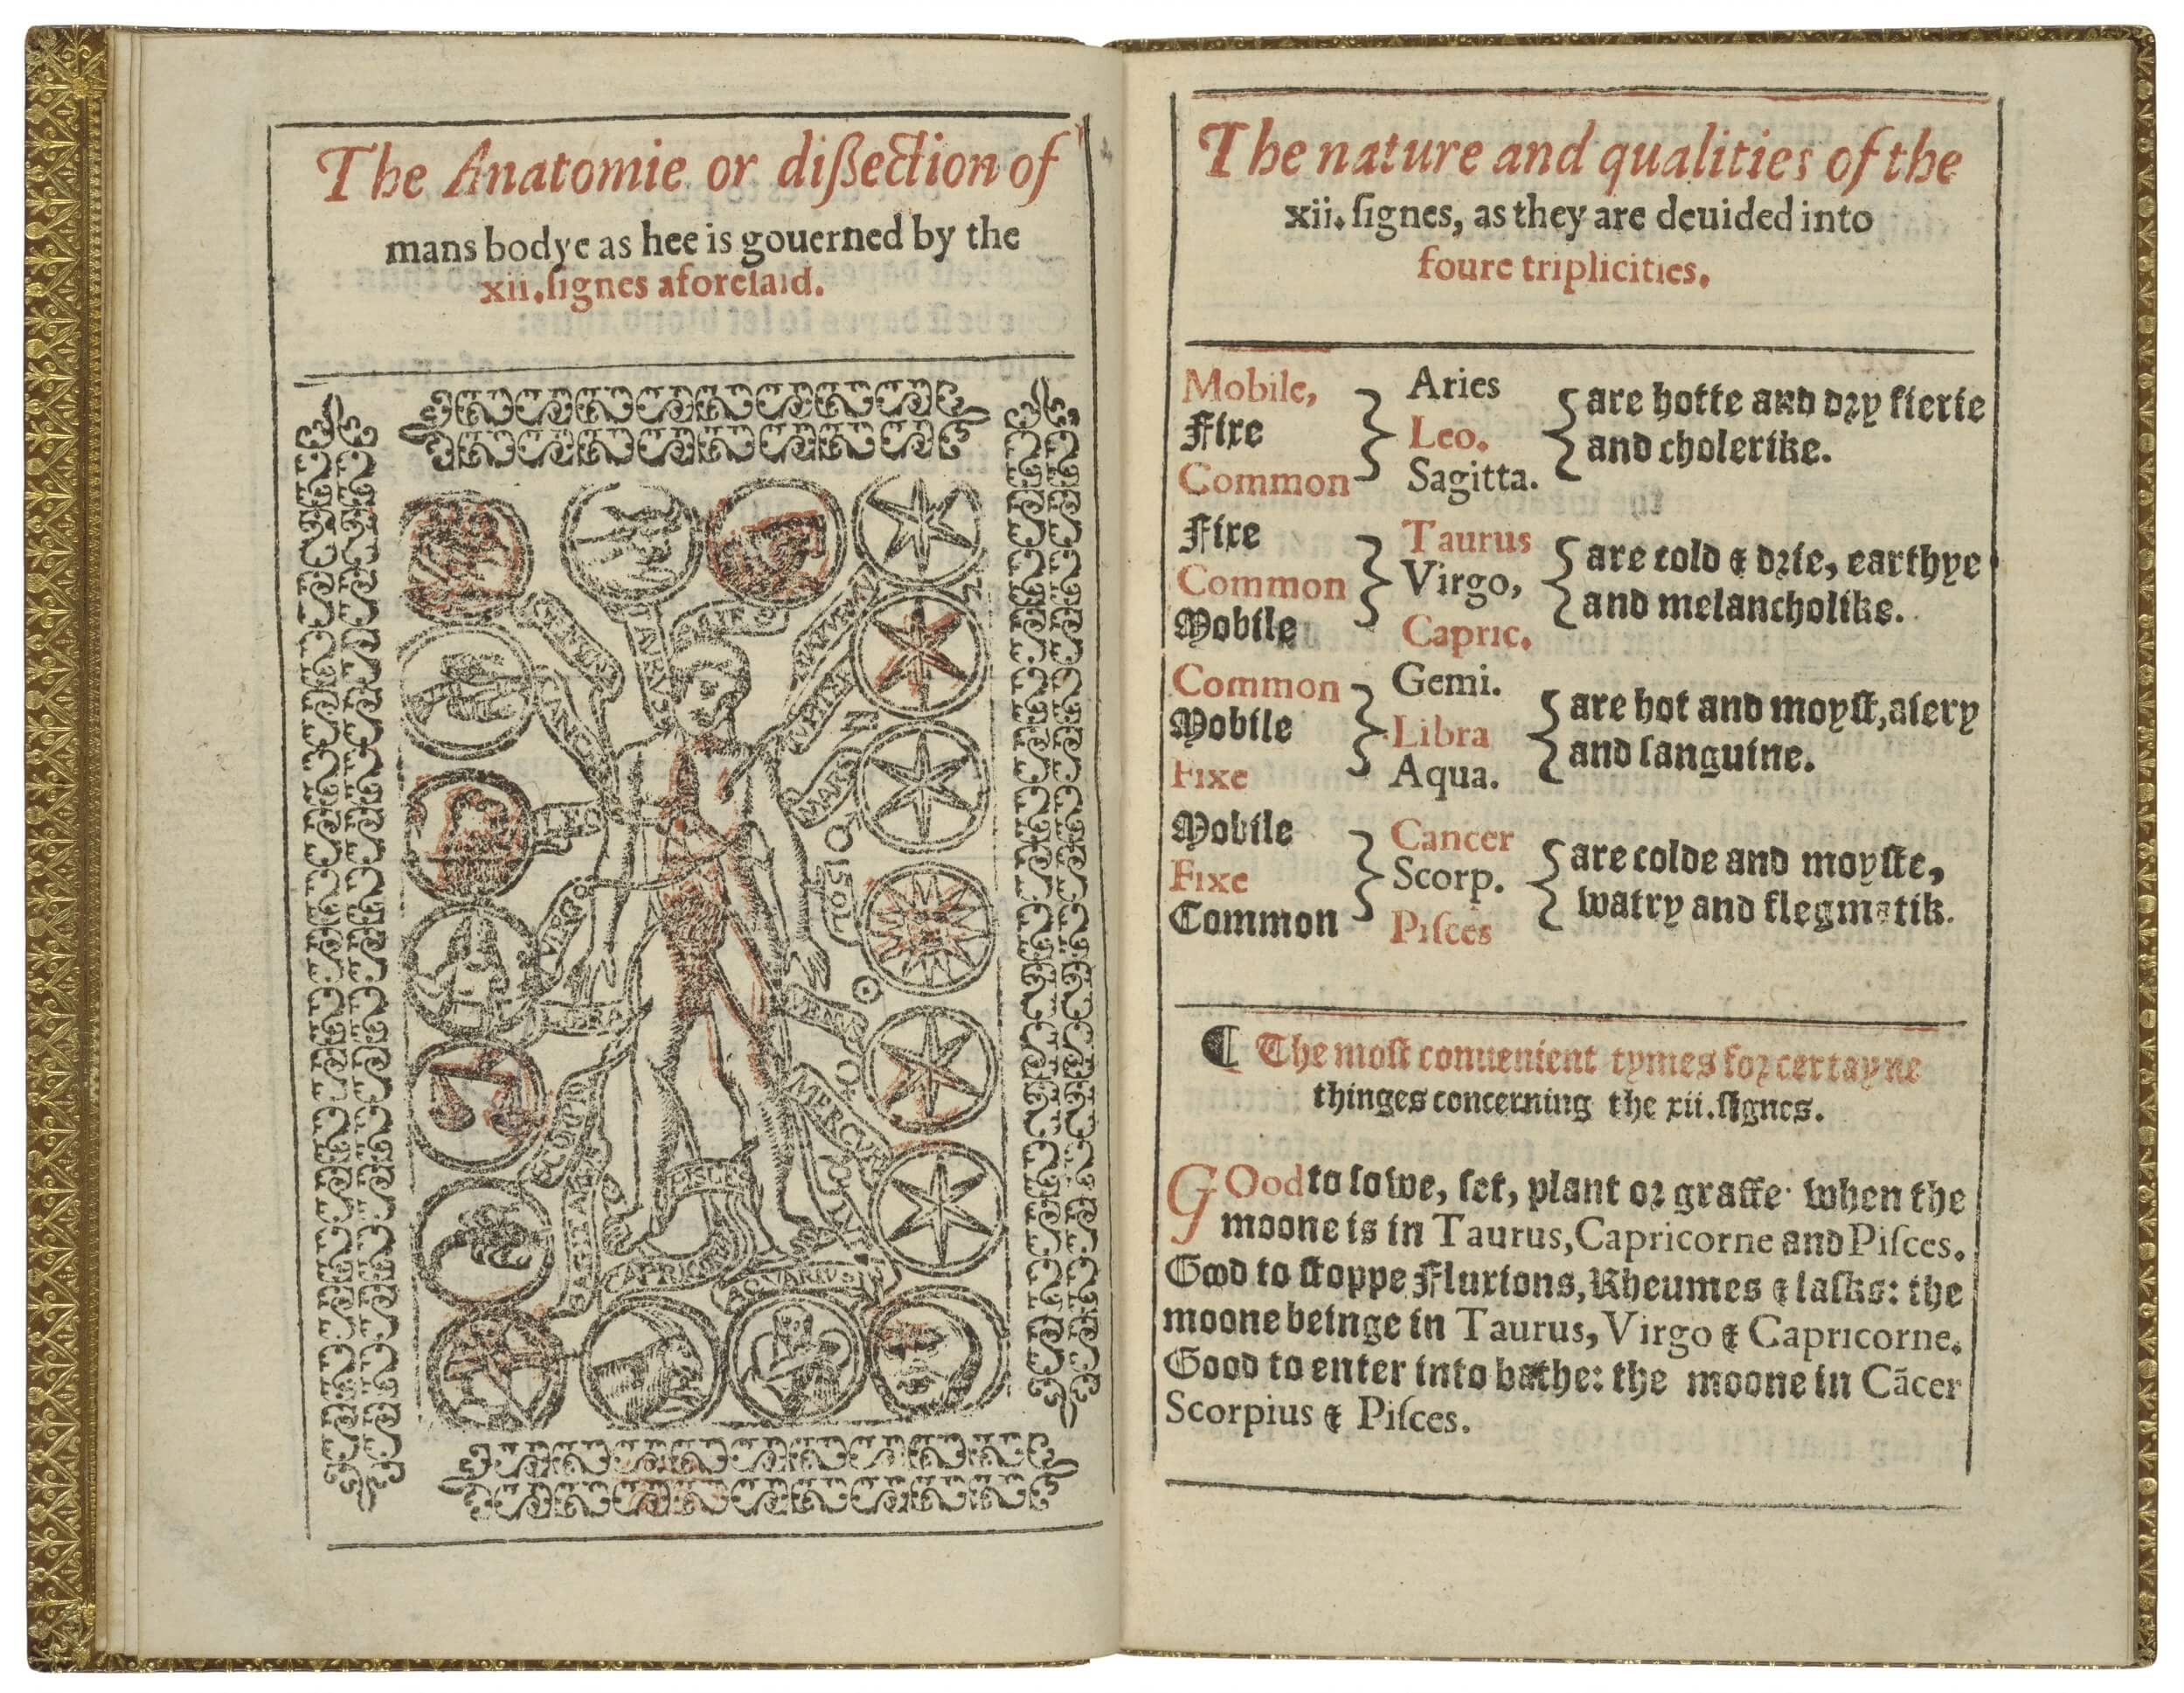 The Anatomie or dißection of
mans bodye as hee is gouerned by the
xii. ſignes aforeſaid.
GEMINI
TAVRVS
ARIES
SATVRN
CANCER
IVPITER
LEO
MARS
SOL
VIRGO
LIBRA
VENVS
MERCVRI
SCORPIO
PISCES
LVNA
SAGITTARIVS
CAPRICOR
AQVARIVS
The nature and qualities of the
xii. ſignes, as they are deuided into
foure triplicities.
Mobile, Aries
Fixe Leo. are hotte and dry fierie
Common Sagitta. and cholerike.
Fixe Taurus are cold & drie, earthye
Common Virgo, and melancholike.
Mobile Capric.
Common Gemi. are hot and moyſt, aiery
Mobile Libra and ſanguine.
Fixe Aqua.
Mobile Cancer are colde and moyſte,
Fixe Scorp. watry and flegmatik.
Common Piſces
¶ The moſt conuenient tymes for certayne
thinges concerning the xii. ſignes.
GOod to ſowe, ſet, plant or graffe when the
moone is in Taurus, Capricorne and Piſces.
Good to ſtoppe Fluxions, Rheumes & laſks: the
moone beinge in Taurus, Virgo & Capricorne.
Good to enter into bathe: the moone in Cācer
Scorpius & Piſces.